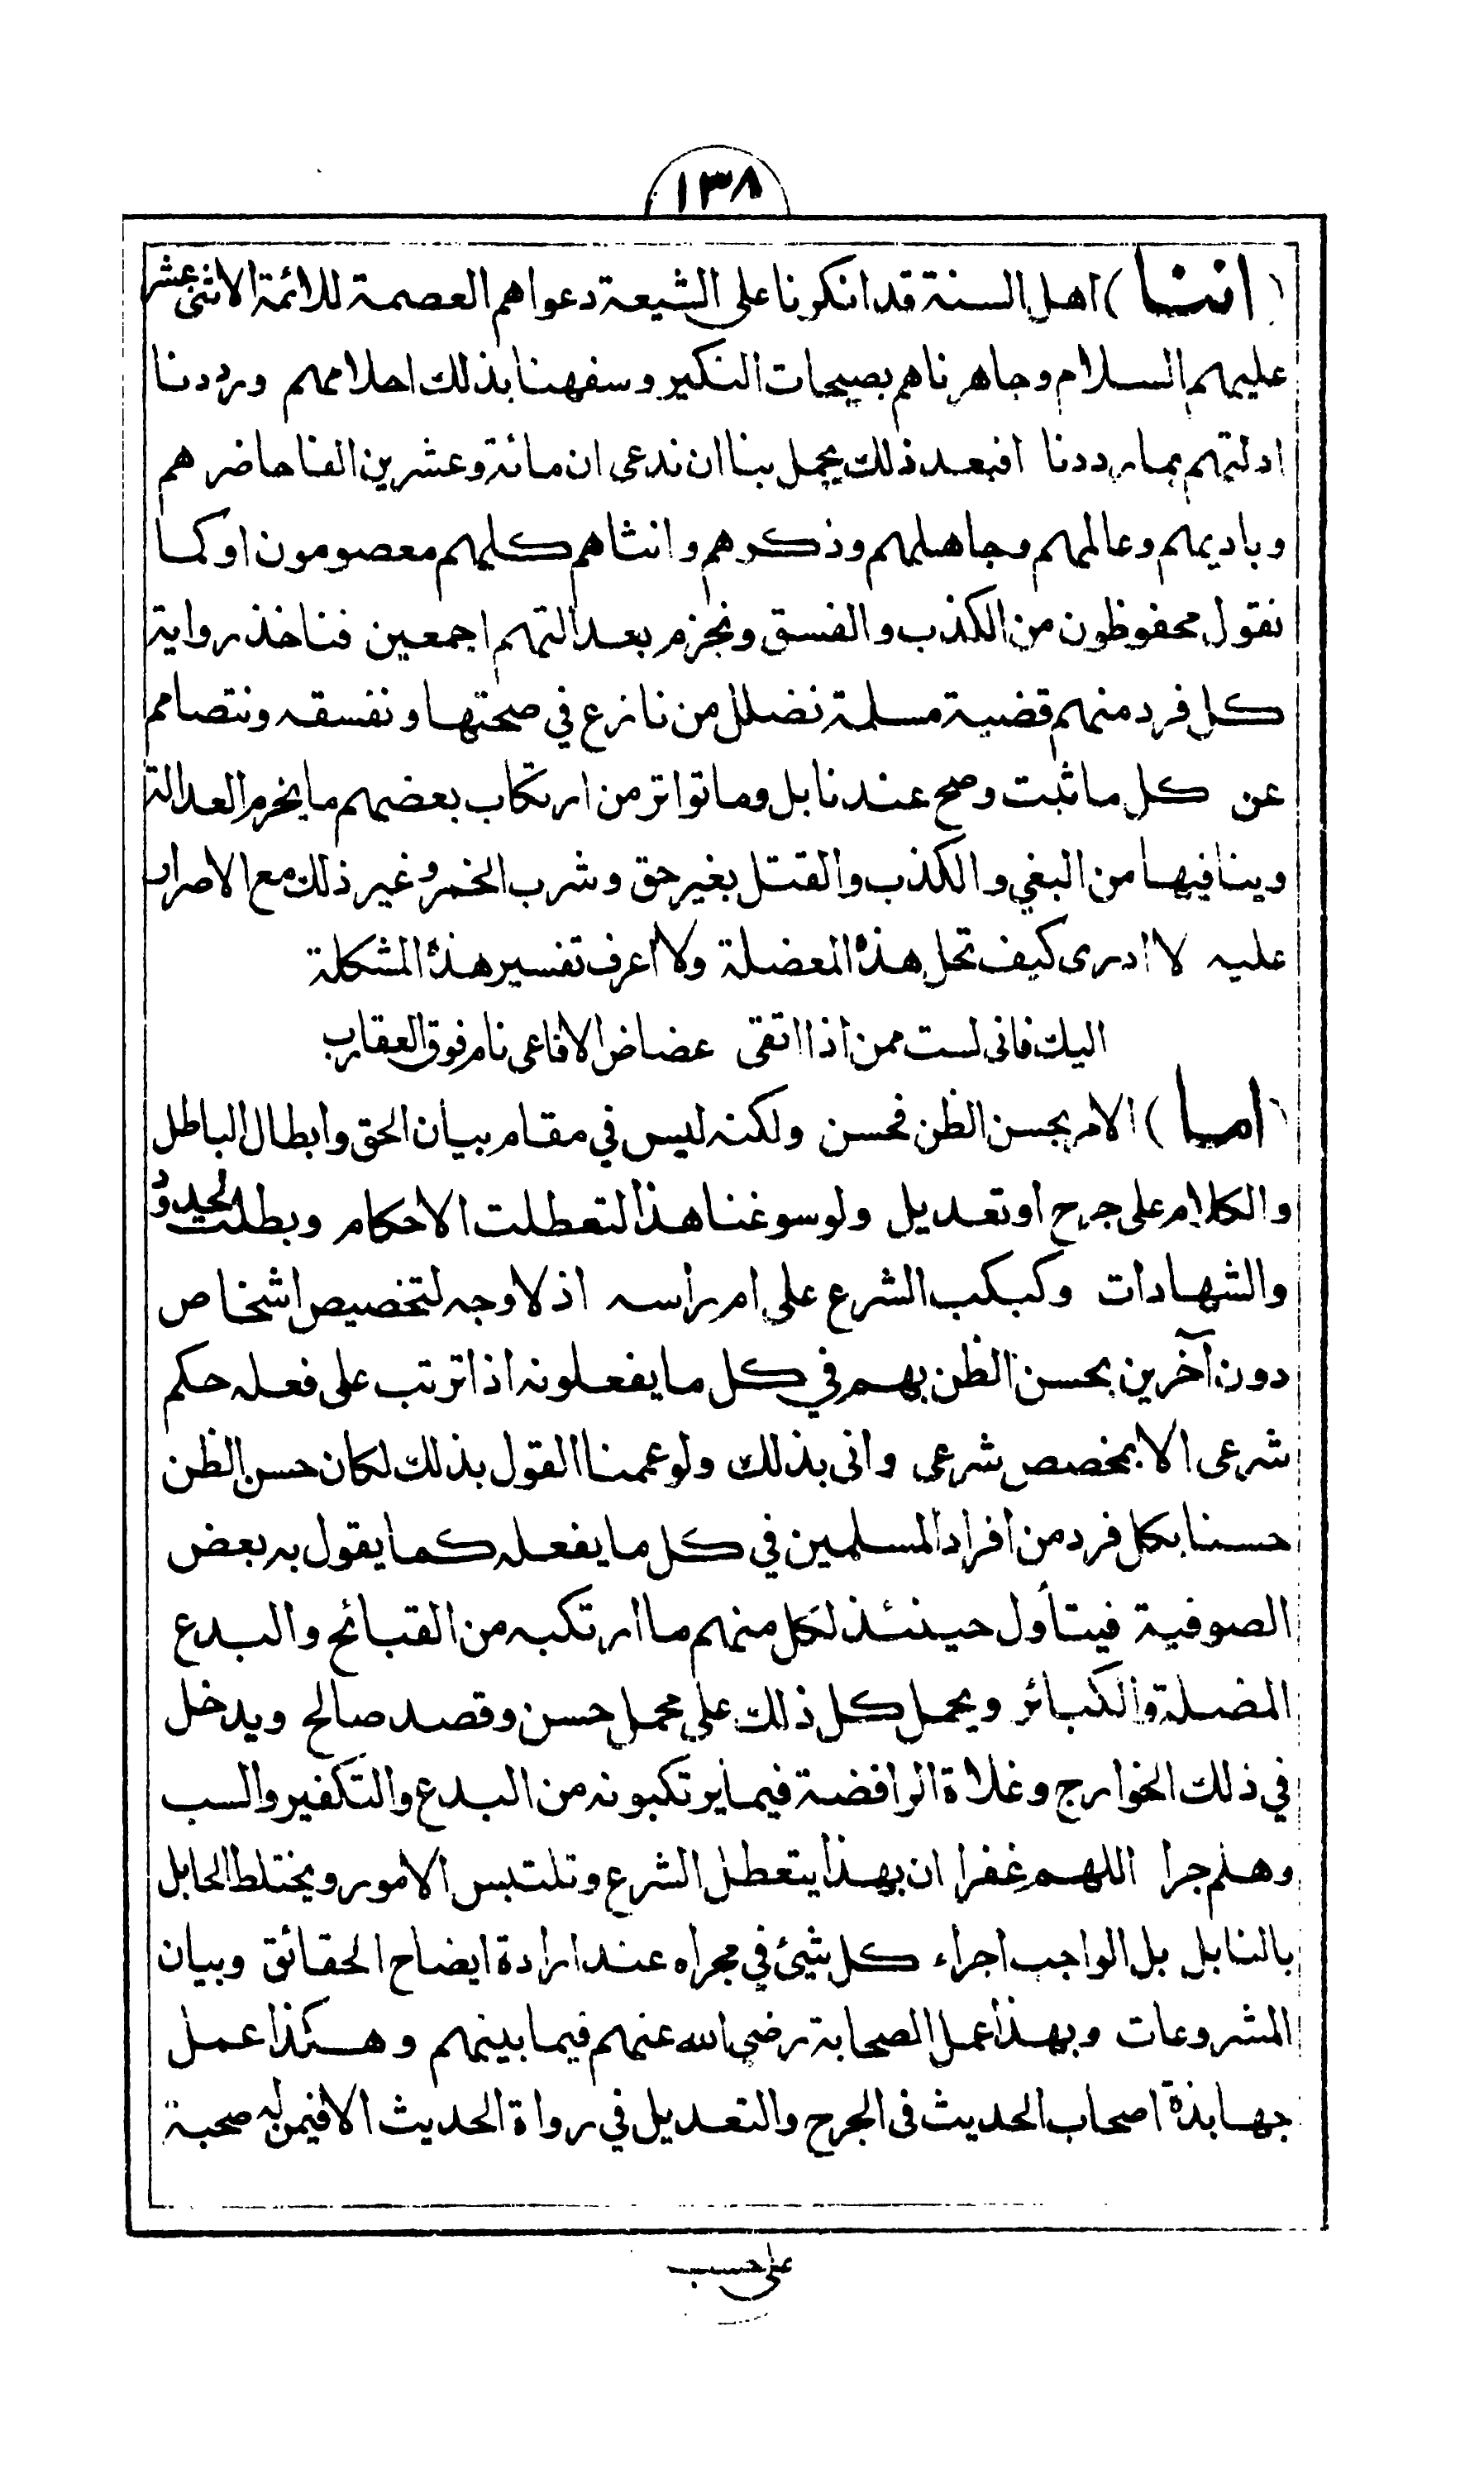 ١٣٨
(اننا) اهل السنة قد انكرنا على الشيعة دعواهم العصمة للائمة الاثنى عشر
عليهم السلام وجاهرناهم بصيحات النكير وسفهنا بذلك احلامهم ورددنا
ادلتهم بما رددنا افبعد ذلك يجمل بنا ان ندعى ان مائة وعشرين الفا حاضرهم
وباديهم وعالمهم وجاهلهم وذكرهم وانثاهم كلهم معصومون او كما
نقول محفوظون من الكذب والفسق ونجزم بعدالتهم اجمعين فناخذ رواية
كل فرد منهم قضية مسلمة نضلل من نازع في صحتها ونفسقه ونتصامم
عن كل ما ثبت وصح عندنا بل وما تواتر من ارتكاب بعضهم ما يخرم العدالة
وينافيها من البغي والكذب والقتل بغير حق وشرب الخمر وغير ذلك مع الاصرار
عليه لا ادرى كيف تحل هذه المعضلة ولا اعرف تفسير هذه المشكلة
اليك فانى لست ممن اذا اتقى عضاض الافاعى نام فوق العقارب
(اما) الامر بحسن الظن فحسن ولكنه ليس في مقام بيان الحق وابطال الباطل
والكلام على جرح او تعديل ولو سوغنا هذا لتعطلت الاحكام وبطلت الحدود
والشهادات وكبكب الشرع على ام راسه اذ لا وجه لتخصيص اشخاص
دون آخرين بحسن الظن بهم في كل ما يفعلونه اذا ترتب على فعله حكم
شرعى الا بمخصص شرعى وانى بذلك ولو عممنا القول بذلك لكان حسن الظن
حسنا بكل فرد من افراد المسلمين في كل ما يفعله كما يقول به بعض
الصوفية فيتأول حينئذ لكل منهم ما ارتكبه من القبائح والبدع
المضلة والكبائر ويحمل كل ذلك على محمل حسن وقصد صالح ويدخل
في ذلك الخوارج وغلاة الرافضة فيما يرتكبونه من البدع والتكفير والسب
وهلم جرا اللهم غفرا ان بهذا يتعطل الشرع وتلتبس الامور ويختلط الحابل
بالنابل بل الواجب اجراء كل شيئ في مجراه عند ارادة ايضاح الحقائق وبيان
المشروعات وبهذا عمل الصحابة رضي الله عنهم فيما بينهم وهكذا عمل
جهابذة اصحاب الحديث فى الجرح والتعديل في رواة الحديث الا فيمن له صحبة
على حسب